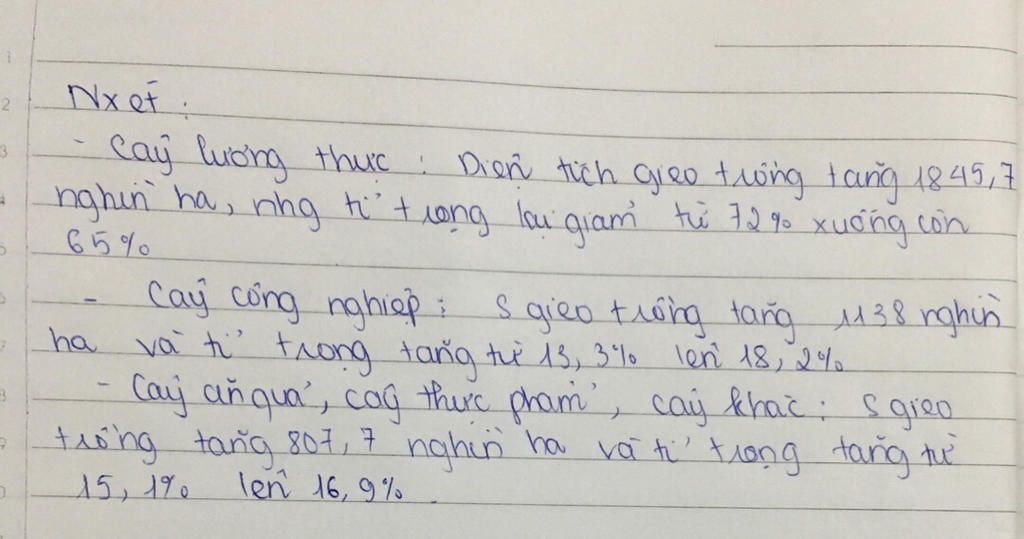 Nxét :
- Cây lương thực : Diện tích gieo trồng tăng 1845,7
nghìn ha, nhg tỉ trọng lại giảm từ 72% xuống còn
65%
- Cây công nghiệp : S gieo trồng tăng 1138 nghìn
ha và tỉ trọng tăng từ 13,3% lên 18,2%
- Cây ăn quả, cây thực phẩm, cây khác : S gieo
trồng tăng 807,7 nghìn ha và tỉ trọng tăng từ
15,1% lên 16,9%.